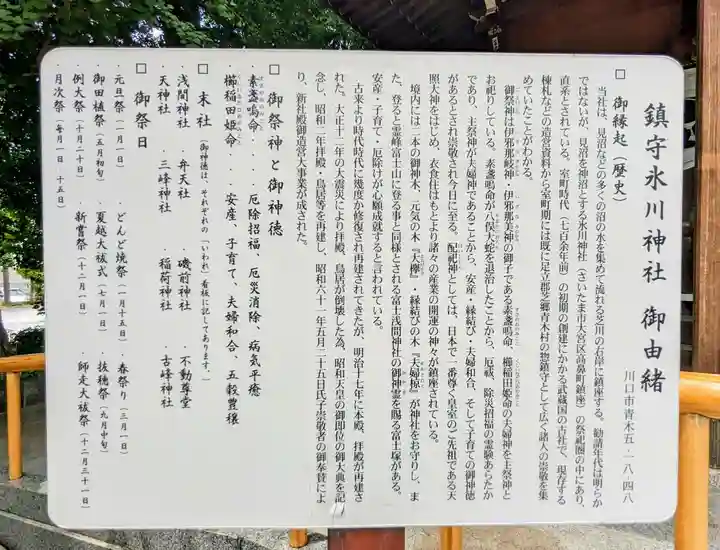 鎮守氷川神社 御由緒
川口市青木五‐一八‐四八
□ 御縁起（歴史）
当社は、見沼などの多くの沼の水を集めて流れる芝川の右岸に鎮座する。勧請年代は明らか
ではないが、見沼を神沼とする氷川神社（さいたま市大宮区高鼻町鎮座）の祭祀圏の中にあり、
直系とされている。室町時代（七百余年前）の初期の創建にかかる武蔵国の古社で、現存する
棟札などの造営資料から室町期には既に足立郡芝郷青木村の惣鎮守として広く諸人の崇敬を集
めていたことがわかる。
御祭神は伊邪那岐神・伊邪那美神の御子である素盞鳴命、櫛稲田姫命の夫婦神を主祭神と
お祀りしている。素盞鳴命が八俣大蛇を退治したことから、厄祓、除災招福の霊験あらたか
であり、主祭神が夫婦神であることから、安産・縁結び・夫婦和合、そして子育ての御神徳
があるとされ崇敬され今日に至る。配祀神としては、日本で一番尊く皇室のご先祖である天
照大神をはじめ、衣食住はもとより諸々の産業の開運の神々が鎮座されている。
境内には二本の御神木、元気の木『大欅』・縁結びの木『夫婦椋』が神社をお守りし、ま
た、登ると霊峰富士山に登る事と同様とされる富士浅間神社の御神霊を賜る富士塚がある。
安産・子育て・厄除けが心願成就すると言われている。
古来より時代時代に幾度か修復され再建されてきたが、明治十七年に本殿、拝殿が再建さ
れた。大正十二年の大震災により拝殿、鳥居が倒壊した為、昭和天皇の御即位の御大典を記
念し、昭和二年拝殿・鳥居等を再建し、昭和六十一年五月二十五日氏子崇敬者の御奉賛によ
り、新社殿御造営大事業が成された。
□ 御祭神と御神徳
素盞鳴命・・・厄除招福、厄災消除、病気平癒
櫛稲田姫命・・・安産、子育て、夫婦和合、五穀豊穣
□ 末社（御神徳は、それぞれの「いわれ」看板に記してあります。）
浅間神社 ・弁天社 ・磯前神社 ・不動尊堂
天神社 ・三峰神社 ・稲荷神社 ・古峰神社
□ 御祭日
・元旦祭（一月一日） ・どんど焼祭（一月十五日） ・春祭り（三月一日）
・御田植祭（五月初旬） ・夏越大祓式（七月一日） ・抜穂祭（九月中旬）
・例大祭（十月二十日） ・新嘗祭（十二月一日） ・師走大祓祭（十二月三十一日）
・月次祭（毎月一日 十五日）